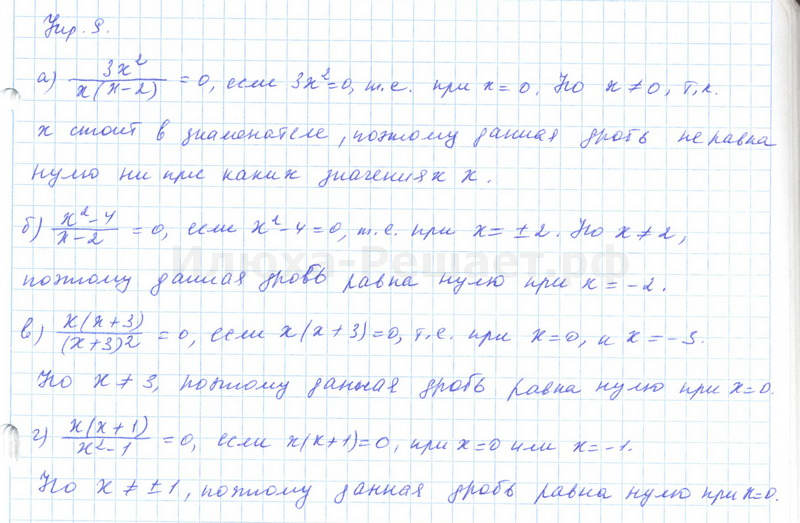 Упр. 9.
а) 3x²/x(x-2) = 0, если 3x²=0, т.е. при x = 0. Но x ≠ 0, т.к.
x стоит в знаменателе, поэтому данная дробь не равна
нулю ни при каких значениях x.
б) x²-4/x-2 = 0, если x²-4=0, т.е. при x = ±2. Но x ≠ 2,
Илюха-Решает.рф
поэтому данная дробь равна нулю при x = -2.
в) x(x+3)/(x+3)2 = 0, если x(x+3)=0, т.е. при x=0, и x = -3.
Но x ≠ 3, поэтому данная дробь равна нулю при x=0.
г) x(x+1)/x²-1 = 0, если x(x+1)=0, при x=0 или x=-1.
Но x ≠ ±1, поэтому данная дробь равна нулю при x=0.